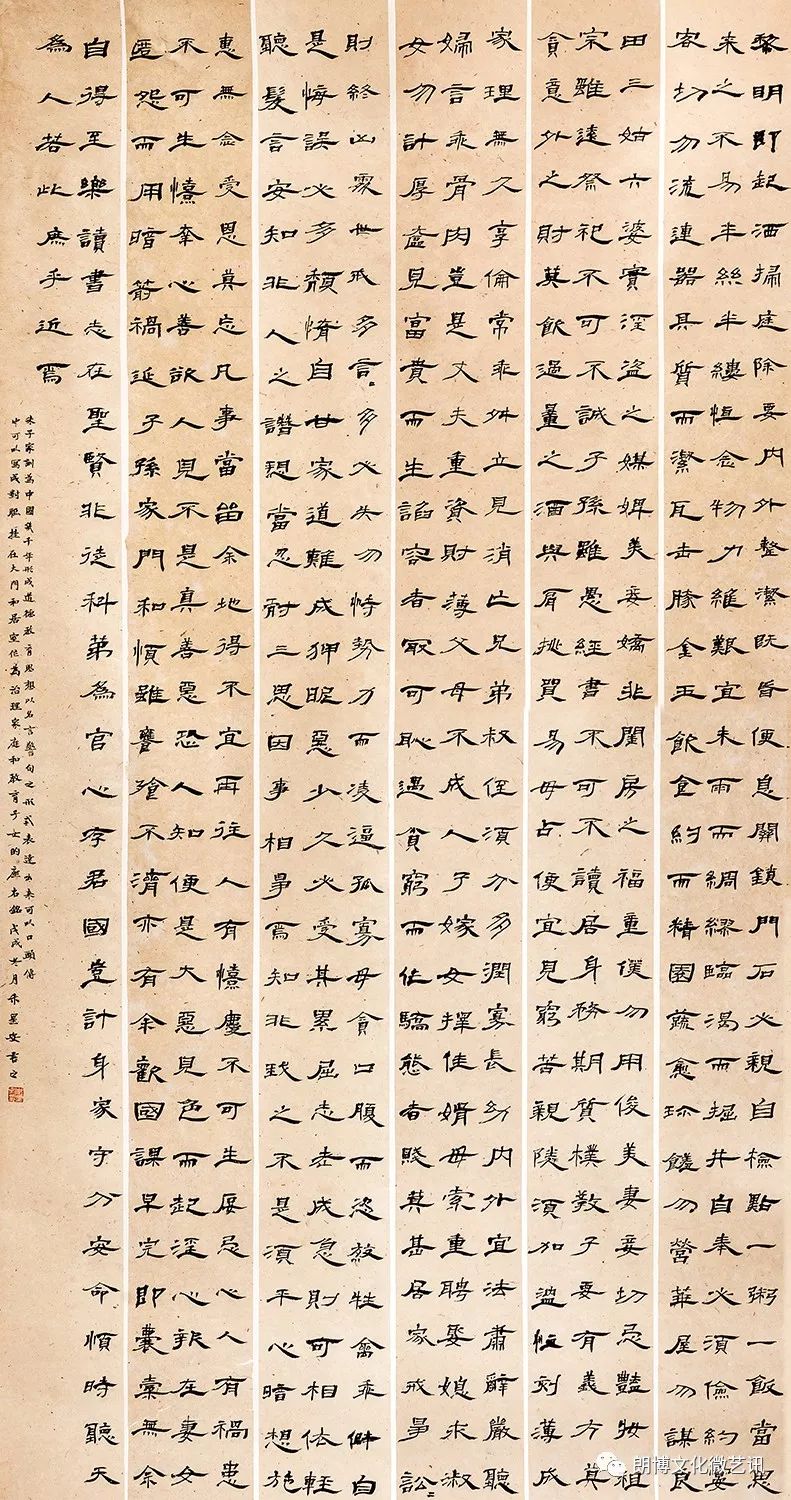 黎明即起洒掃庭除要內外整潔既昏便息關鎖門戶必親自檢點一粥一飯當思
來之不易半絲半縷恆念物力維艱宜未雨而綢繆臨渴而掘井自奉必須儉約宴
客切勿流連器具質而潔瓦缶勝金玉飲食約而精園蔬愈珍饈勿營華屋勿謀良
田三姑六婆實淫盜之媒婢美妾嬌非閨房之福重僕勿用俊美妻妾切忌豔妝祖
宗雖遠祭祀不可不誠子孫雖愚經書不可不讀居身務期質樸教子要有義方莫
貪意外之財莫飲過量之酒與肩挑貿易毋占便宜見窮苦親隣須加溫恤刻薄成
家理無久享倫常乖舛立見消亡兄弟叔侄須分多潤寡長幼內外宜法肅辭嚴聽
婦言乖骨肉豈是丈夫重資財薄父母不成人子嫁女擇佳婿毋索重聘娶媳求淑
女勿計厚奩見富貴而生諂容者最可恥遇貧窮而作驕態者賤莫甚居家戒爭訟〻
則終凶處世戒多言〻多必失勿恃勢力而凌逼孤寡毋貪口腹而恣殺牲禽乖僻自
是悔誤必多頹惰自甘家道難成狎昵惡少久必受其累屈志老成急則可相依輕
聽髮言安知非人之譖愬當忍耐三思因事相爭焉知非我之不是須平心暗想施
惠無念受恩莫忘凡事當留余地得不宜再往人有憙慶不可生妬忌心人有禍患
不可生憙幸心善欲人見不是真善惡恐人知便是大惡見色而起淫心報在妻女
匿怨而用暗箭禍延子孫家門和順雖饔飧不濟亦有余歡國課早完即囊橐無余
自得至樂讀書志在聖賢非徒科第為官心存君國豈計身家守分安命順時聽天
為人若此庶乎近焉
朱子家訓為中國幾千年形成道德教育思想以名言警句之形式表達出來可以口頭傳
中可以寫成對聯挂在大門和居室作為治理家庭和教育子女的座右銘戊戌冬月朱星安書之
朗博文化微艺讯